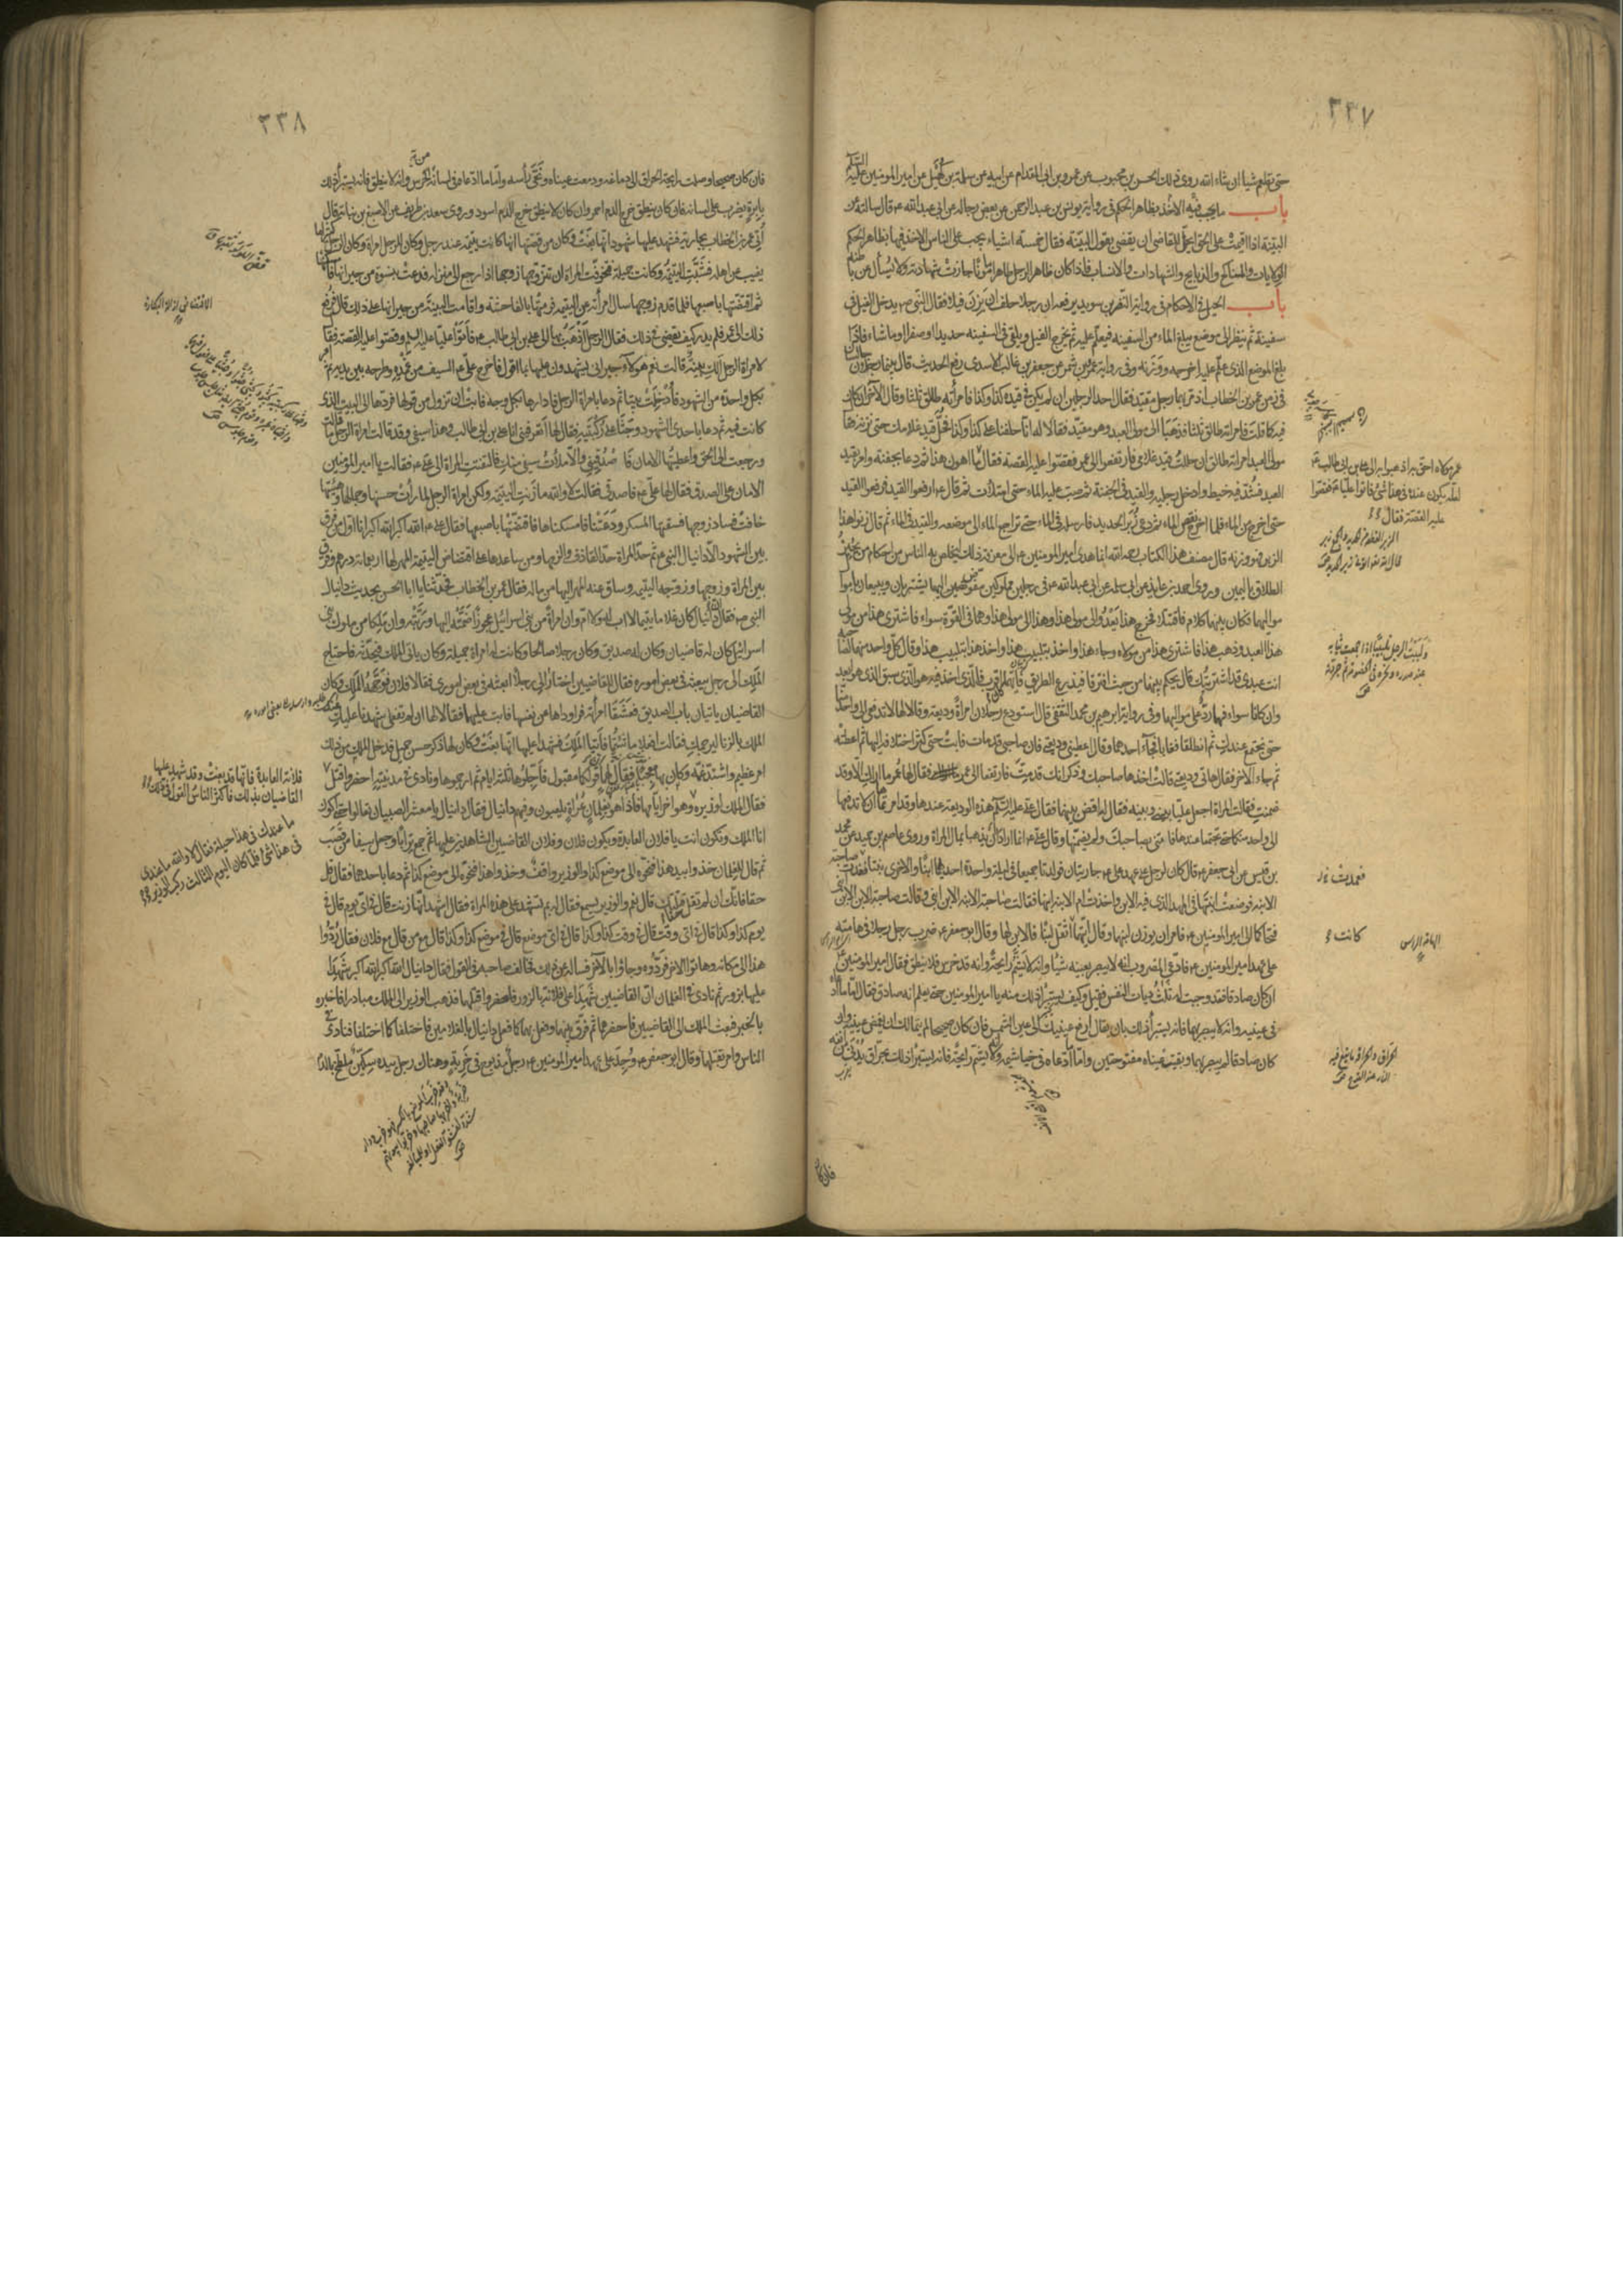 ٣٣٧
حتى يقام شيا ان شاء الله روى ذلك الحسن بن محبوب عن عمرو بن ابى المقدام عن ابيه عن سلمة بن كهيل عن امير المؤمنين عليه السلم
باب ما يجب فيه الاخذ بظاهر الحكم فى رواية يونس بن عبد الرحمن عن بعض رجاله عن ابى عبد الله ع قال سالته عن
البينة اذا اقيمت على الحق ايحل للقاضى ان يقضى بقول البينة فقال خمسة اشياء يجب على الناس الاخذ فيها بظاهر الحكم
الولايات والمناكح والذبايح والشهادات والانساب فاذا كان ظاهر الرجل ظاهرا مامونا جازت شهادته ولا يسأل عن باطنه
باب الحيل فى الاحكام فى رواية النضر بن سويد يرفعه ان رجلا حلف ان يزن فيلا فقال النبى ص يدخل الفيل فى
سفينة ثم ينظر الى موضع مبلغ الماء من السفينة فيعلم عليه ثم يخرج الفيل ويلقى فى السفينة حديدا او صفرا او ما شاء فاذا
بلغ الموضع الذى علم عليه اخرجه ووزنه وفى رواية عمرو بن شمر عن جعفر بن غالب الاسدى رفع الحديث قال بينما رجلان جالسان
فى زمن عمر بن الخطاب اذ مر بهما رجل مقيد فقال احد الرجلين ان لم يكن فى قيده كذا وكذا فامرأته طالق ثلثا وقال الآخر ان كان
فيه كما قلت فامراته طالق ثلثا فذهبا الى مولى العبد وهو مقيد فقالا له انا حلفنا على كذا وكذا فحل قيد غلامك حتى نزنه فقال
مولى العبد امراته طالق ان حللت قيد غلامى فارتفعوا الى عمر فقصوا عليه القصة فقال ما اهون هذا ثم دعا بجفنة وامر بقيد
العبد فشد فيه خيط وادخل رجليه والقيد فى الجفنة ثم صب عليه الماء حتى امتلات ثم قال ع ارفعوا القيد فرفعوا القيد
حتى اخرج من الماء فلما اخرج نقص الماء ثم دعى بزبر الحديد فارسله فى الماء حتى تراجع الماء الى موضعه والقيد فى الماء ثم قال زنوا هذا
الزبر فهو وزنه قال مصنف هذا الكتاب رحمه الله انما هدى امير المؤمنين ع الى معرفة ذلك ليخلص به الناس من احكام من يجيز
الطلاق باليمين وروى احمد بن عائذ عن ابى سلمة عن ابى عبد الله ع فى رجلين مملوكين مفوض اليهما يشتريان ويبيعان باموال
مواليهما فكان بينهما كلام فاقتتلا فخرج هذا يعدو الى مولى هذا وهذا الى مولى هذا وهما فى القوة سواء فاشترى هذا من مولى
هذا العبد وذهب هذا فاشترى هذا من مولاه وجاء هذا واخذ بتلبيب هذا واخذ هذا بتلبيب هذا وقال كل واحد منهما لصاحبه
انت عبدى قد اشتريتك قال يحكم بينهما من حيث افترقا فيذرع الطريق فايهما كان اقرب فالذى اخذ فيه هو الذى سبق الذى هو ابعد
وان كانا سواء فهما رد على مواليهما وفى رواية ابرهيم بن محمد الثقفى قال استودع رجلان امراة وديعة وقالا لها لا تدفعى الى واحد منا
حتى نجتمع عندك ثم انطلقا فغابا فجاء احدهما وقال اعطينى وديعتى فان صاحبى قد مات فابت حتى كثر اختلافه اليها ثم اعطته
ثم جاء الآخر فقال هاتى وديعتى قالت اخذها صاحبك وذكر انك قد مت فارتفعا الى عمر فقال لها عمر ما اراك الا وقد
ضمنت فقالت المراة اجعل عليا بينى وبينه فقال له اقض بينهما فقال على عليه السلم هذه الوديعة عندها وقد امرتماها ان لا تدفعها
الى واحد منكما حتى تجتمعا عندها فائتنى بصاحبك ولم يضمنها وقال على ع انما ارادا ان يذهبا بمال المراة وروى عاصم بن حميد عن محمد
بن قيس عن ابى جعفر ع قال كان لرجل على عهد على ع جاريتان فولدتا جميعا فى ليلة واحدة احديهما ابنا والاخرى بنتا فعمدت صاحبة
الابنة فوضعت ابنتها فى المهد الذى فيه الابن واخذت ام الابنة ابنها فقالت صاحبة الابنة الابن ابنى وقالت صاحبة الابن الابن ابنى
فتحاكما الى امير المؤمنين ع فامر ان يوزن لبنهما وقال ايتهما اثقل لبنا فالابن لها وقال ابو جعفر ع ضرب رجل رجلا فى هامته
على عهد امير المؤمنين ع فادعى المضروب انه لا يبصر بعينه شيئا وانه لا يشم رايحة وانه قد خرس فلا ينطق فقال امير المؤمنين ع
ان كان صادقا فقد وجبت له ثلث ديات النفس فقيل وكيف يستبرأ ذلك منه يا امير المؤمنين حتى يعلم انه صادق فقال اما ما ادعاه
فى عينيه وانه لا يبصر بهما فانه يستبرأ ذلك بان يقال ارفع عينيك الى عين الشمس فان كان صحيحا لم يتمالك ان يغمض عينيه وان
كان صادقا لم يبصر بهما وبقيت عيناه مفتوحتين واما ما ادعاه فى خياشيمه وانه لا يشم رايحة فانه يستبرأ ذلك بحراق يدنى من انفه
فان كا
عمر مولاه احق به اذهبوا به الى على بن ابى طالب ع
لعله يكون عنده فى هذا شئ فاتوا عليا ع فقصوا
عليه القصة فقال
كانت
الهامة الراس
٣٣٨
فان كان صحيحا وصلت رايحة الحراق الى دماغه ودمعت عيناه ونحى راسه واما ما ادعاه فى لسانه من الخرس وانه لا ينطق فانه يستبرأ ذلك
بابرة يضرب على لسانه فان كان ينطق خرج الدم احمر وان كان لا ينطق خرج الدم اسود وروى سعد بن طريف عن الاصبغ بن نباتة قال
اتى عمر بن الخطاب بجارية فشهد عليها شهود انها بغت وكان من قصتها انها كانت يتيمة عند رجل وكان للرجل امراة وكان الرجل كثيرا ما
يغيب عن اهله فشبت اليتيمة وكانت جميلة فتخوفت المراة ان يتزوجها زوجها اذا رجع الى منزله فدعت بنسوة من جيرانها فامسكنها
ثم اقتضتها باصبعها فلما قدم زوجها سال امراته عن اليتيمة فرمتها بالفاحشة واقامت البينة من جيرانها على ذلك قال فرفع
ذلك الى عمر فلم يدر كيف يقضى فى ذلك فقال للرجل اذهب بها الى على بن ابى طالب ع فاتوا عليا عليه السلم وقصوا عليه القصة فقال
لامراة الرجل الك بينة قالت نعم هؤلاء جيرانى يشهدون عليها بما اقول فاخرج على ع السيف من غمده وطرحه بين يديه ثم امر
بكل واحدة من الشهود فادخلت بيتا ثم دعا بامراة الرجل فادارها بكل وجه فابت ان تزول عن قولها فردها الى البيت الذى
كانت فيه ثم دعا باحدى الشهود وجثا على ركبتيه فقال لها اتعرفينى انا على بن ابى طالب وهذا سيفى وقد قالت امراة الرجل ما قالت
ورجعت الى الحق واعطيتها الامان فاصدقينى والا ملأت سيفى منك فالتفتت المراة الى على ع فقالت يا امير المؤمنين
الامان على الصدق فقال لها على ع فاصدقى فقالت لا والله ما زنت اليتيمة ولكن امراة الرجل لما رات حسنها وجمالها وهيئتها
خافت فساد زوجها فسقتها المسكر ودعتنا فامسكناها فاقتضتها باصبعها فقال على ع الله اكبر الله اكبر انا اول من فرق
بين الشهود الا دانيال النبى ع ثم حد المراة حد القاذف والزمها ومن ساعدها على اقتضاض اليتيمة المهر لها اربعمائة درهم وفرق
بين المراة وزوجها وزوجه اليتيمة وساق عنه المهر اليها من ماله فقال عمر بن الخطاب فحدثنا يا ابا الحسن بحديث دانيال
النبى ع فقال ان دانيال كان غلاما يتيما لا اب له ولا ام وان امراة من بنى اسرائيل عجوزا ضمته اليها وربته وان ملكا من ملوك بنى
اسرائيل كان له قاضيان وكان له صديق وكان رجلا صالحا وكانت له امراة جميلة وكان ياتى الملك فيحدثه فاحتاج
الملك الى رجل يبعثه فى بعض اموره فقال للقاضيين اختارا لى رجلا ابعثه فى بعض امورى فقالا فلان فوجهه الملك وكان
القاضيان ياتيان باب الصديق فعشقا امراته فراوداها عن نفسها فابت عليهما فقالا لها ان لم تفعلى شهدنا عليك عند
الملك بالزنا ليرجمك فقالت افعلا ما شئتما فاتيا الملك فشهدا عليها انها بغت وكان لها ذكر حسن جميل فدخل الملك من ذلك
امر عظيم واشتد غمه وكان بها معجبا فقال لهما ان قولكما مقبول فاجلوها ثلثة ايام ثم ارجموها ونادى فى مدينته احضروا قتل
فقال الملك لوزيره وهو اخر ايامها فاذا هو بغلمان عراة يلعبون وفيهم دانيال فقال دانيال يا معشر الصبيان تعالوا حتى اكون
انا الملك وتكون انت يا فلان العابدة ويكون فلان وفلان القاضيين الشاهدين عليها ثم جمع ترابا وجعل سيفا من قصب
ثم قال للغلمان خذوا بيد هذا فنحوه الى موضع كذا والوزير واقف وخذوا هذا فنحوه الى موضع كذا ثم دعا باحدهما فقال قل
حقا فانك ان لم تقل حقا قتلتك قال نعم والوزير يسمع فقال له بم تشهد على هذه المراة فقال اشهد انها زنت قال فى اى يوم قال فى
يوم كذا وكذا قال فى اى وقت قال فى وقت كذا وكذا قال فى اى موضع قال فى موضع كذا وكذا قال مع من قال مع فلان فقال ردوا
هذا الى مكانه وهاتوا الاخر فردوه وجاؤا بالآخر فساله عن ذلك فخالف صاحبه فى القول فقال دانيال الله اكبر الله اكبر شهدا
عليها بزور ثم نادى فى الغلمان ان القاضيين شهدا على فلانة بالزور فاحضروا قتلهما فذهب الوزير الى الملك مبادرا فاخبره
بالخبر فبعث الملك الى القاضيين فاحضرهما ثم فرق بينهما وفعل بهما كما فعل دانيال بالغلامين فاختلفا كما اختلفا فنادى فى
الناس وامر بقتلهما وقال ابو جعفر ع وجد على عهد امير المؤمنين ع رجل مذبوح فى خربة وهناك رجل بيده سكين ملطخ بالدم
فلانة العابدة فانها قد بغت وقد شهد عليها
القاضيان بذلك فاكثر الناس القول فى ذلك
ما عندك فى هذا حيلة فقال لا والله ما عندى
فى هذا شئ فلما كان اليوم الثالث ركب الوزير